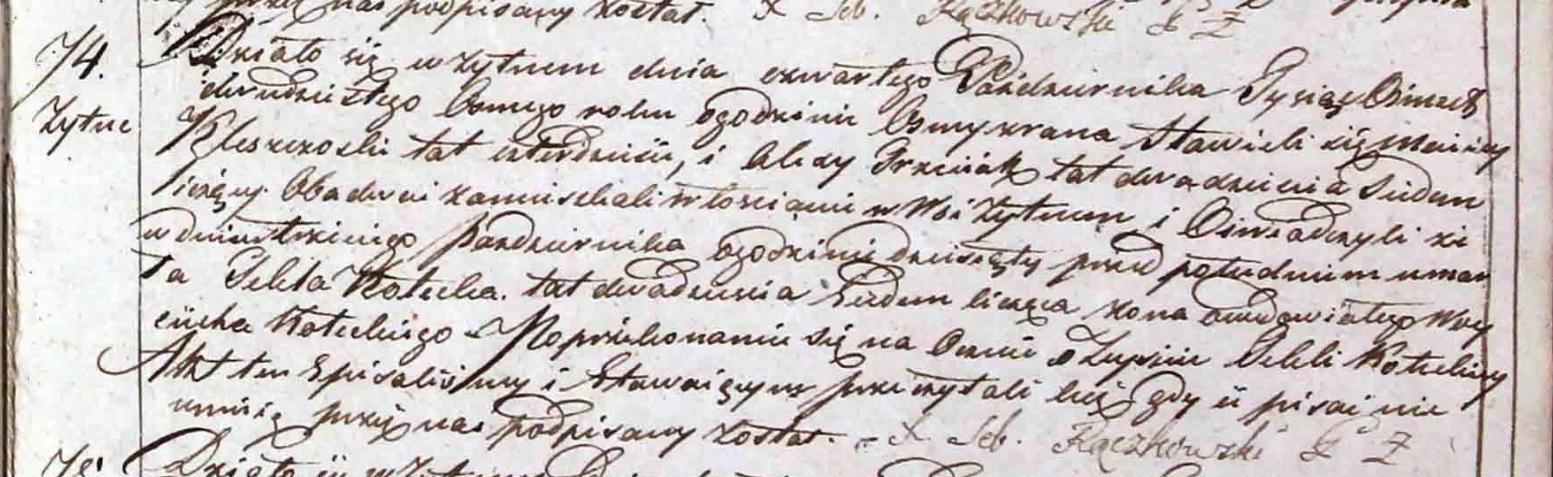 przez nas podpisany został. X Seb. Rączkowski P Z
74. Działo się w Zytnem dnia czwartego Pazdziernika Tysiąc Osmset
Zytne dwudziestego Osmego roku ogodzinie Osmy zrana Stawieli się Maciey
Kleszczoski lat czterdzieści, i Alexy Grzesiak lat dwadziescia siedem
liczący Obadwai zamieszkali włościanie w Wsi Zytnem i Oswiadczyli że
w dniu trzeciego pazdziernika ogodzinie dziesiąty przed południem umar
ła Tekla Kotecka lat dwadziescia siedem licząca zona owdowiałego Woy
ciecha Koteckiego Po przekonaniu się na Ocznie o Zeyściu Tekli Kotecky
Akt ten Spisaliśmy i Stawaiącym przeczytali lecz gdy ci pisać nie
umieią przez nas podpisany został. X Seb. Rączkowski P Z
Działo się w